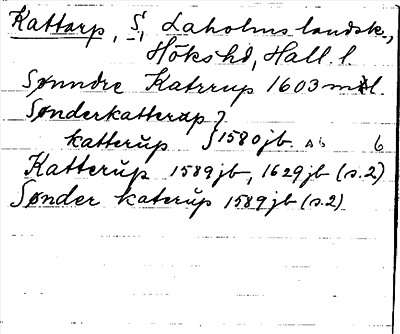 Kattarp, S., Laholms landsk.,
Höks hd, Hall. l.
Sønndre Katrrup 1603 mtl.
Sønderkatterap }
katterup } 1580 jb. Ab 6
Katterup 1589 jb, 1629 jb (s.2)
Sønder katerup 1589 jb (s.2)